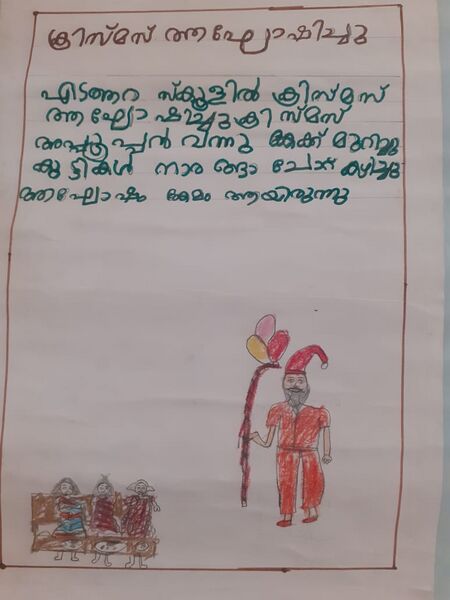 ക്രിസ്മസ് ആഘോഷിച്ചു
സ്കൂളിൽ ക്രിസ്മസ്
ആഘോഷിച്ചു ക്രിസ്മസ്
അപ്പൂപ്പൻ വന്നു കേക്ക് മുറിച്ചു
കുട്ടികൾ നാരങ്ങാ ചോറ് കഴിച്ചു
ആഘോഷം കേമം ആയിരുന്നു